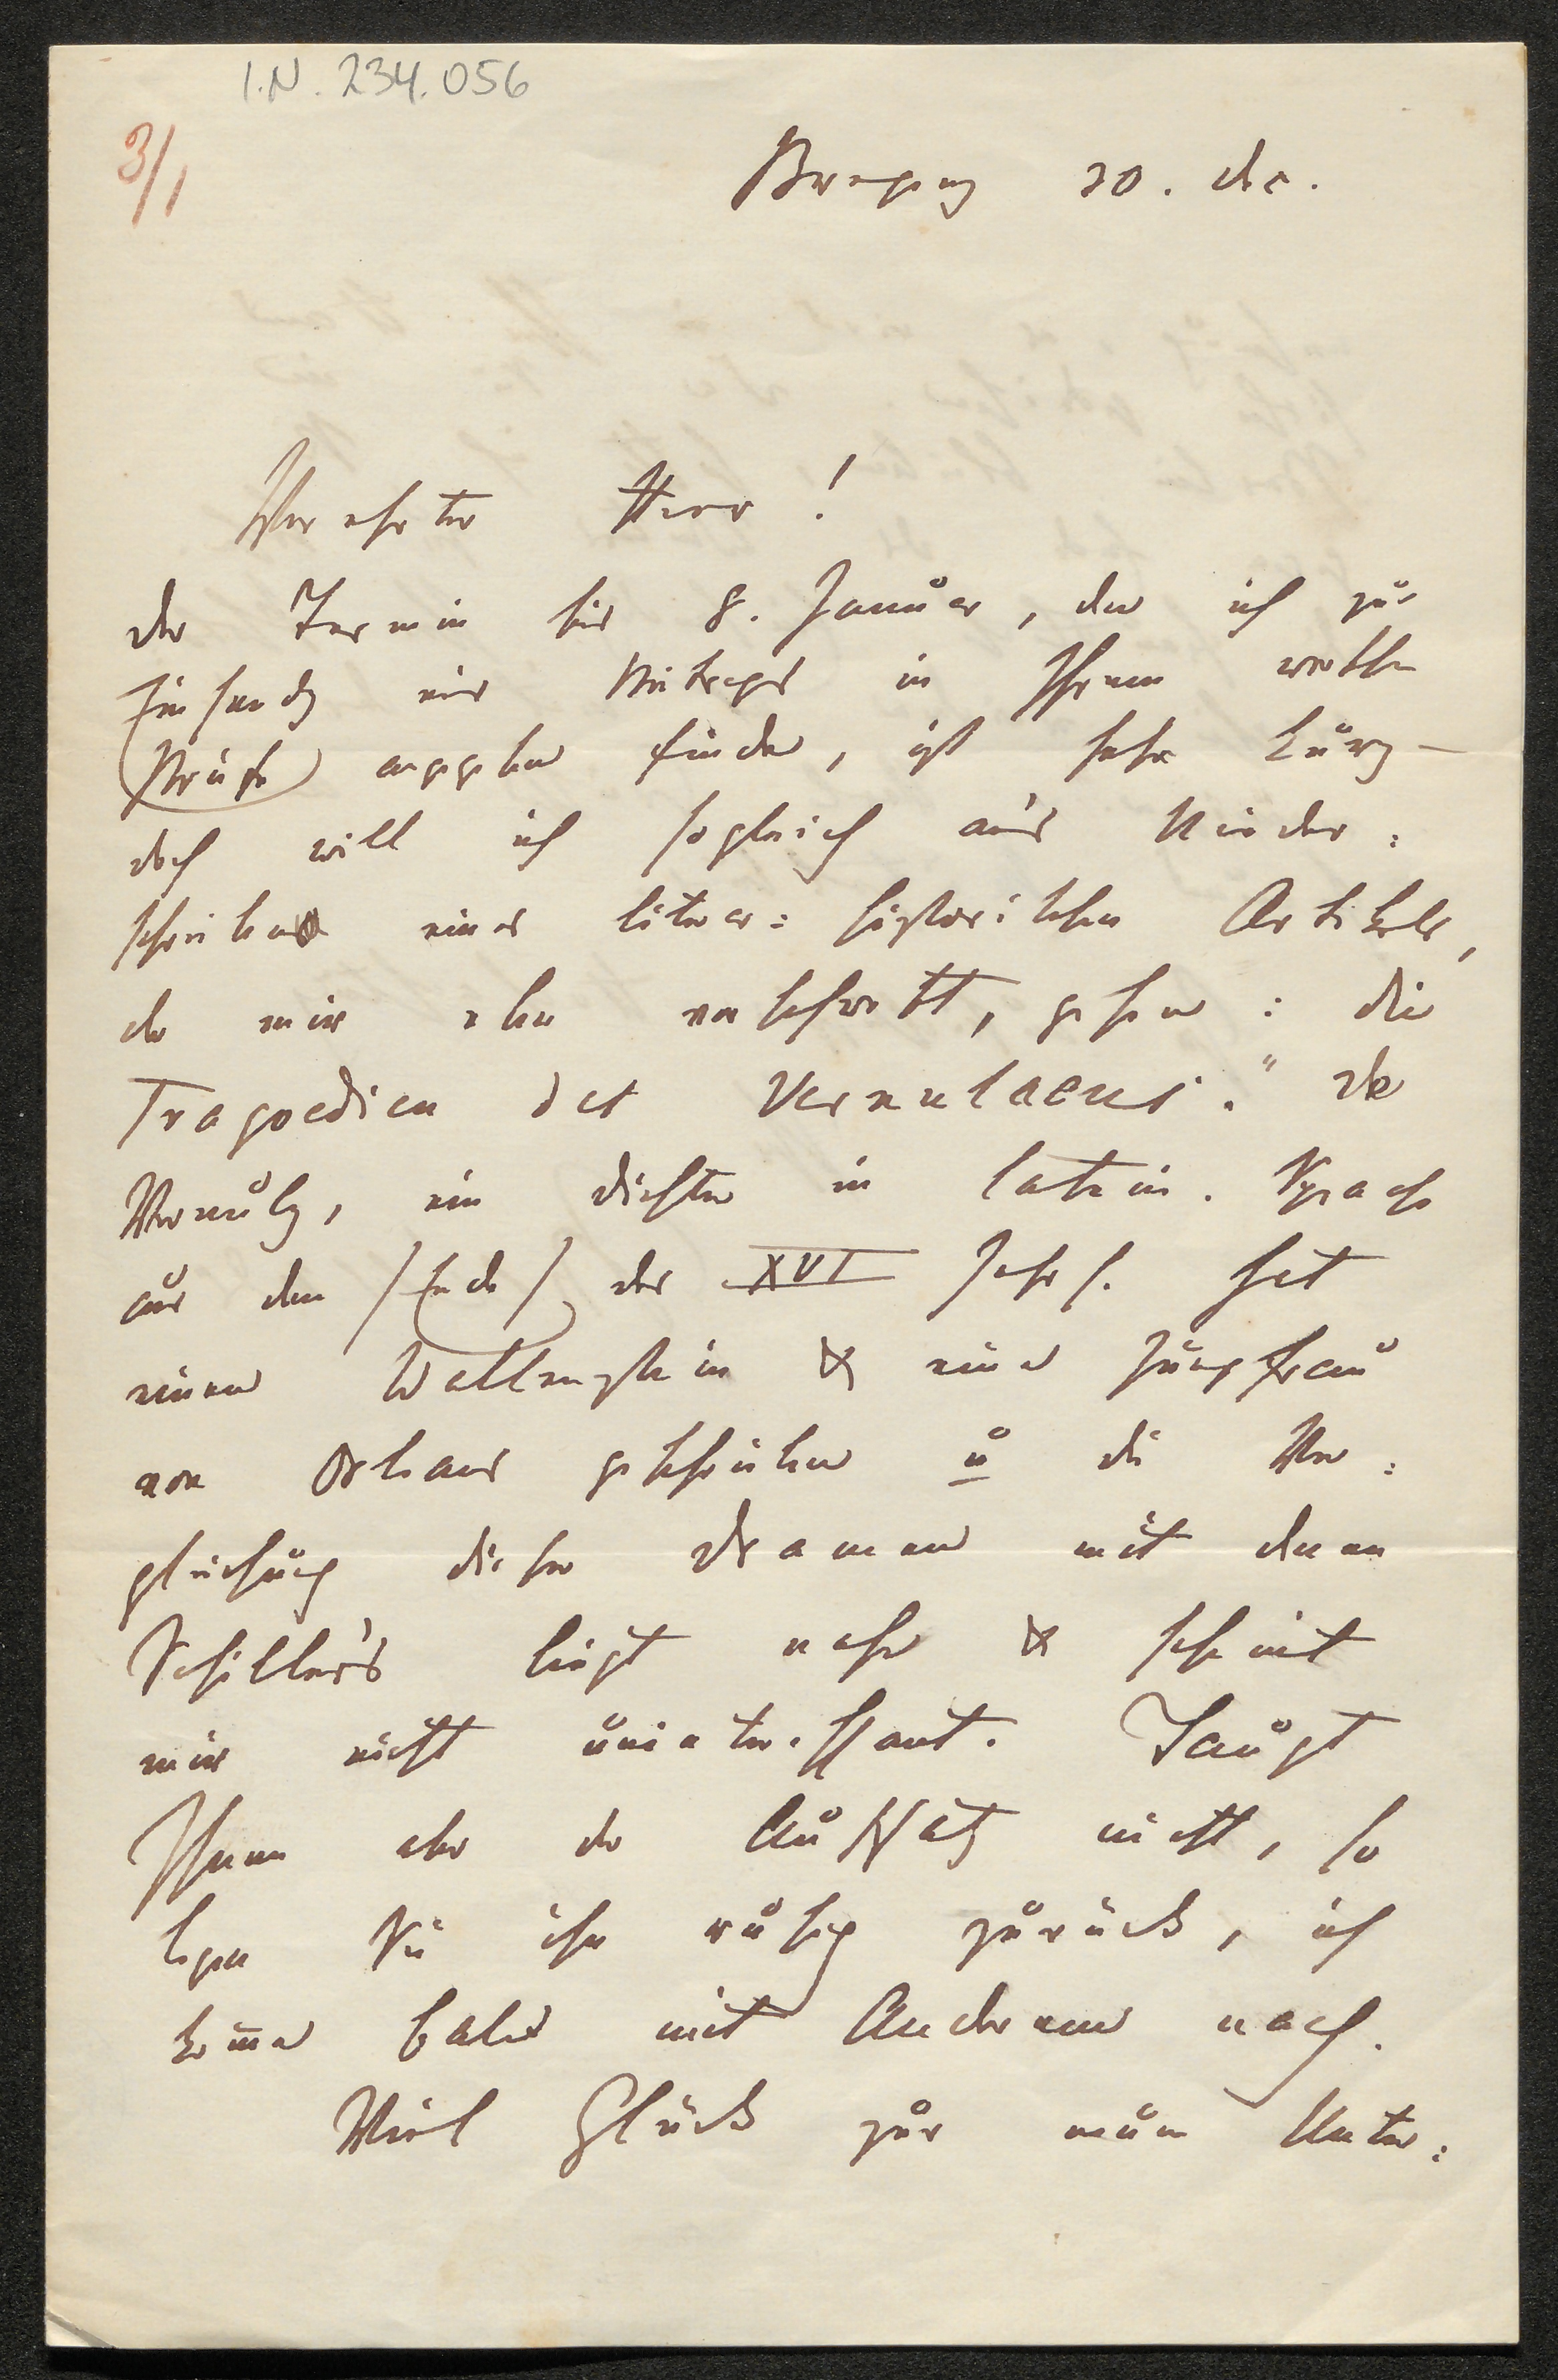 I.N. 234.056
3/1
Bregenz 30. Dec.
Verehrter Herr!
der Termin bis 8. Januar, den ich zur
Einsendg eines Beitrages in Ihrem werthen
Briefe angegeben finde, ist sehr kurz –
doch will ich sogleich an's Nieder:
schreiben eines literar: historischen Artikels,
der mir eben vorschwebt, gehen: die
Tragoedien des Vernulaeus." Der
Vernulz, ein Dichter in latein. Sprache
aus dem /Ende/ des XVI Jahrh. hat
einen Wallenstein & eine Jungfrau
von Orleans geschrieben u die Ver:
gleichung dieser Dramen mit denen
Schiller's liegt nahe & scheint
mir nicht uninteressant. Taugt
Ihnen aber der Aufsatz nicht, so
legen Sie ihn ruhig zurück, ich
kom̄e bald mit Anderem nach.
Viel Glück zur neuen Unter: